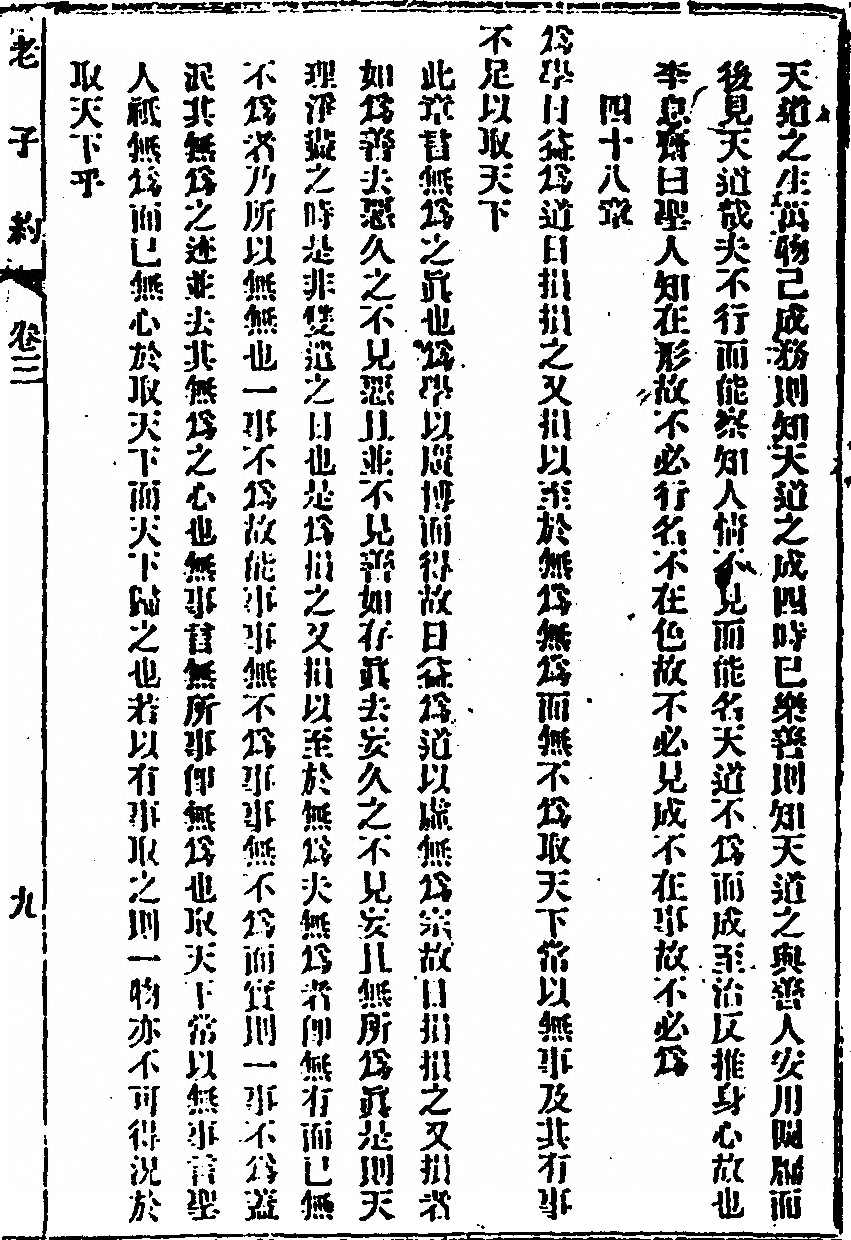 天道之生萬物己成務則知天道之成四時已樂善則知天道之與善人安用闚牖而
後見天道哉夫不行而能察知人情不見而能名天道不為而成至治反推身心故也
李息齋曰聖人知在形故不必行名不在色故不必見成不在事故不必為
四十八章
為學日益為道日損損之又損以至於無為無為而無不為取天下常以無事及其有事
不足以取天下
此章言無為之眞也為學以廣博而得故日益為道以虛無為宗故日損損之又損者
如為善去惡久之不見惡且並不見善如存眞去妄久之不見妄且無所為眞是則天
理淨盡之時是非雙遣之日也是為損之又損以至於無為夫無為者卽無有而已無
不為者乃所以無無也一事不為故能事事無不為事事無不為而實則一事不為蓋
泯其無為之迹並去其無為之心也無事言無所事卽無為也取天下常以無事言聖
人祇無為而已無心於取天下而天下歸之也若以有事取之則一物亦不可得況於
取天下乎
老子約 卷三 九